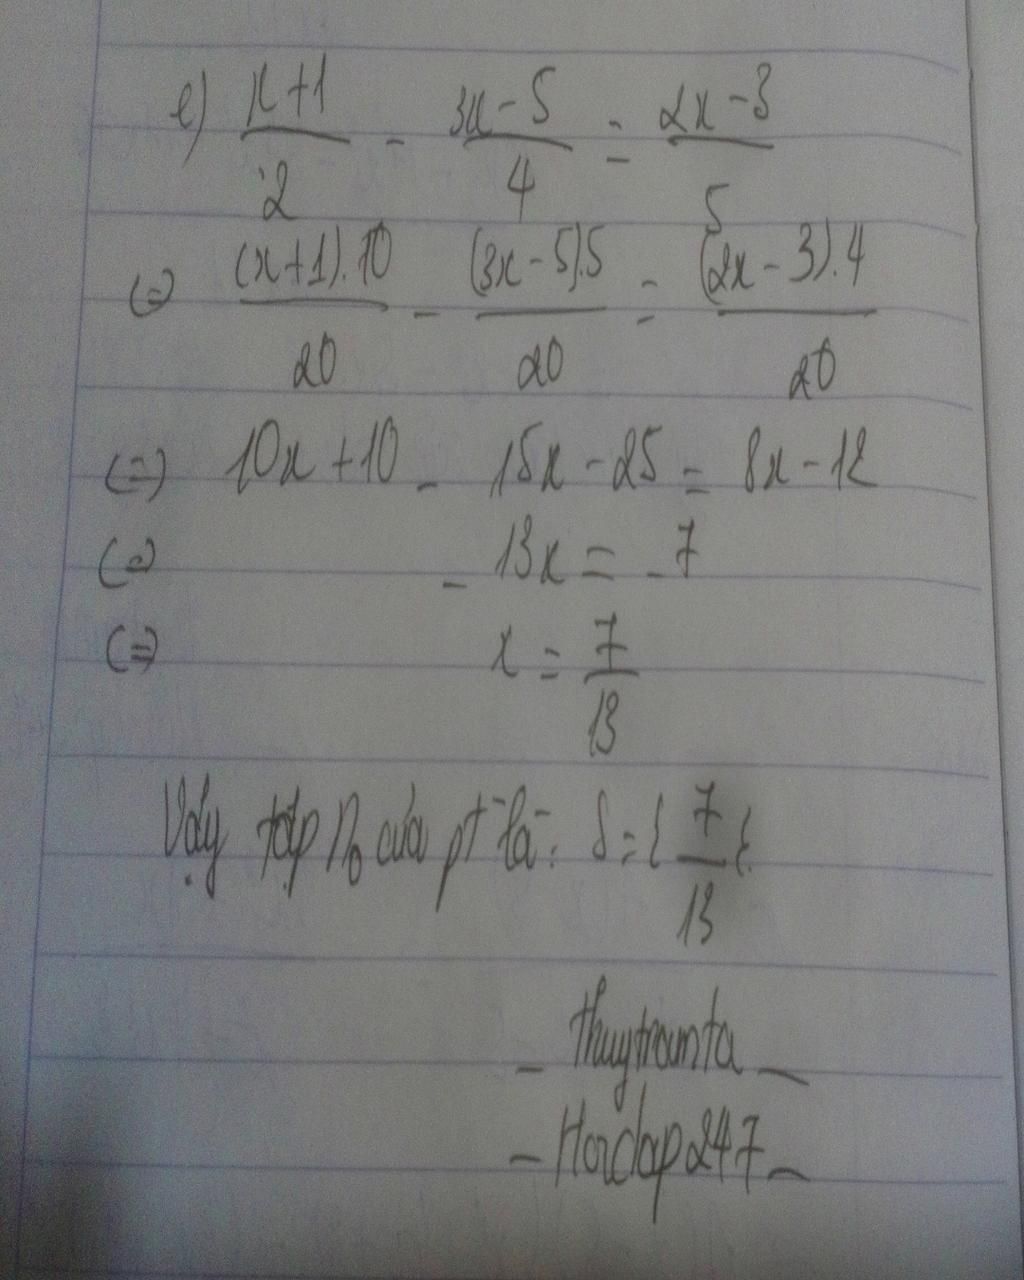 e) x+1/2 - 3x-5/4 = 2x-3/5
(=) (x+1).10/20 - (3x-5).5/20 = (2x-3).4/20
(=) 10x+10 - 15x-25 = 8x-12
(=) - 13x = -7
(=) x = 7/13
Vậy tập n0 của pt là: S={7/13}.
- thuytramta -
- Hoidap247 -